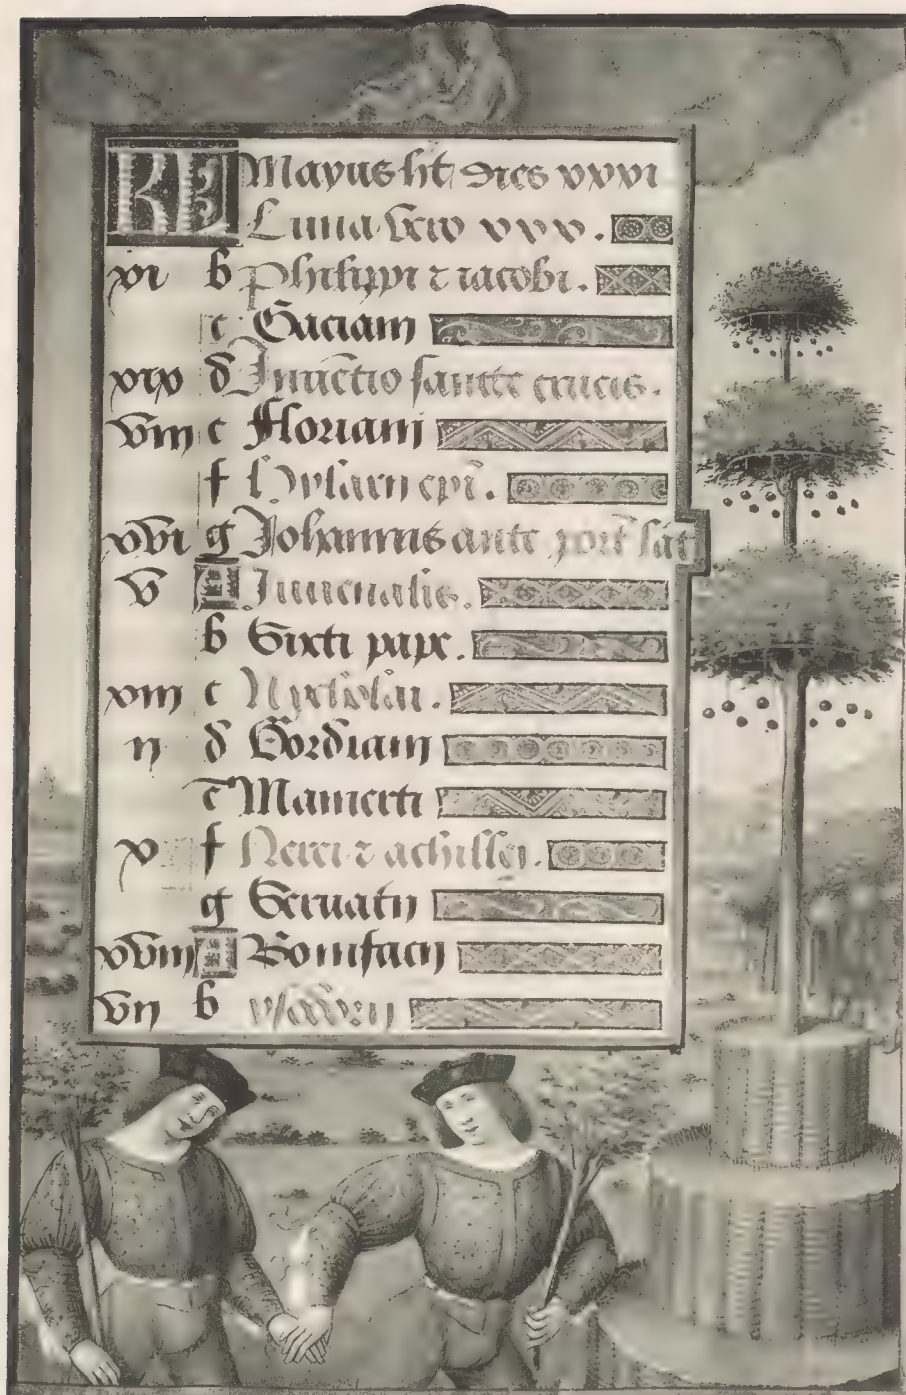 KL Mayus ht dies xxxi
Luna vero xxx.
xi b Philippi ⁊ iacobi.
c Gaciani
xix d Inuẽtio sancte crucis.
viii e Floriani
f Hylarii ep̄i.
xvi g Johannis ante port̄ lat̄
v A Iuuenalis.
b Sixti pape.
xiii c Nycholai.
ii d Gordiani
e Mamerti
x f Nerei ⁊ achillei.
g Seruatii
xviii A Bonifacii
vii b